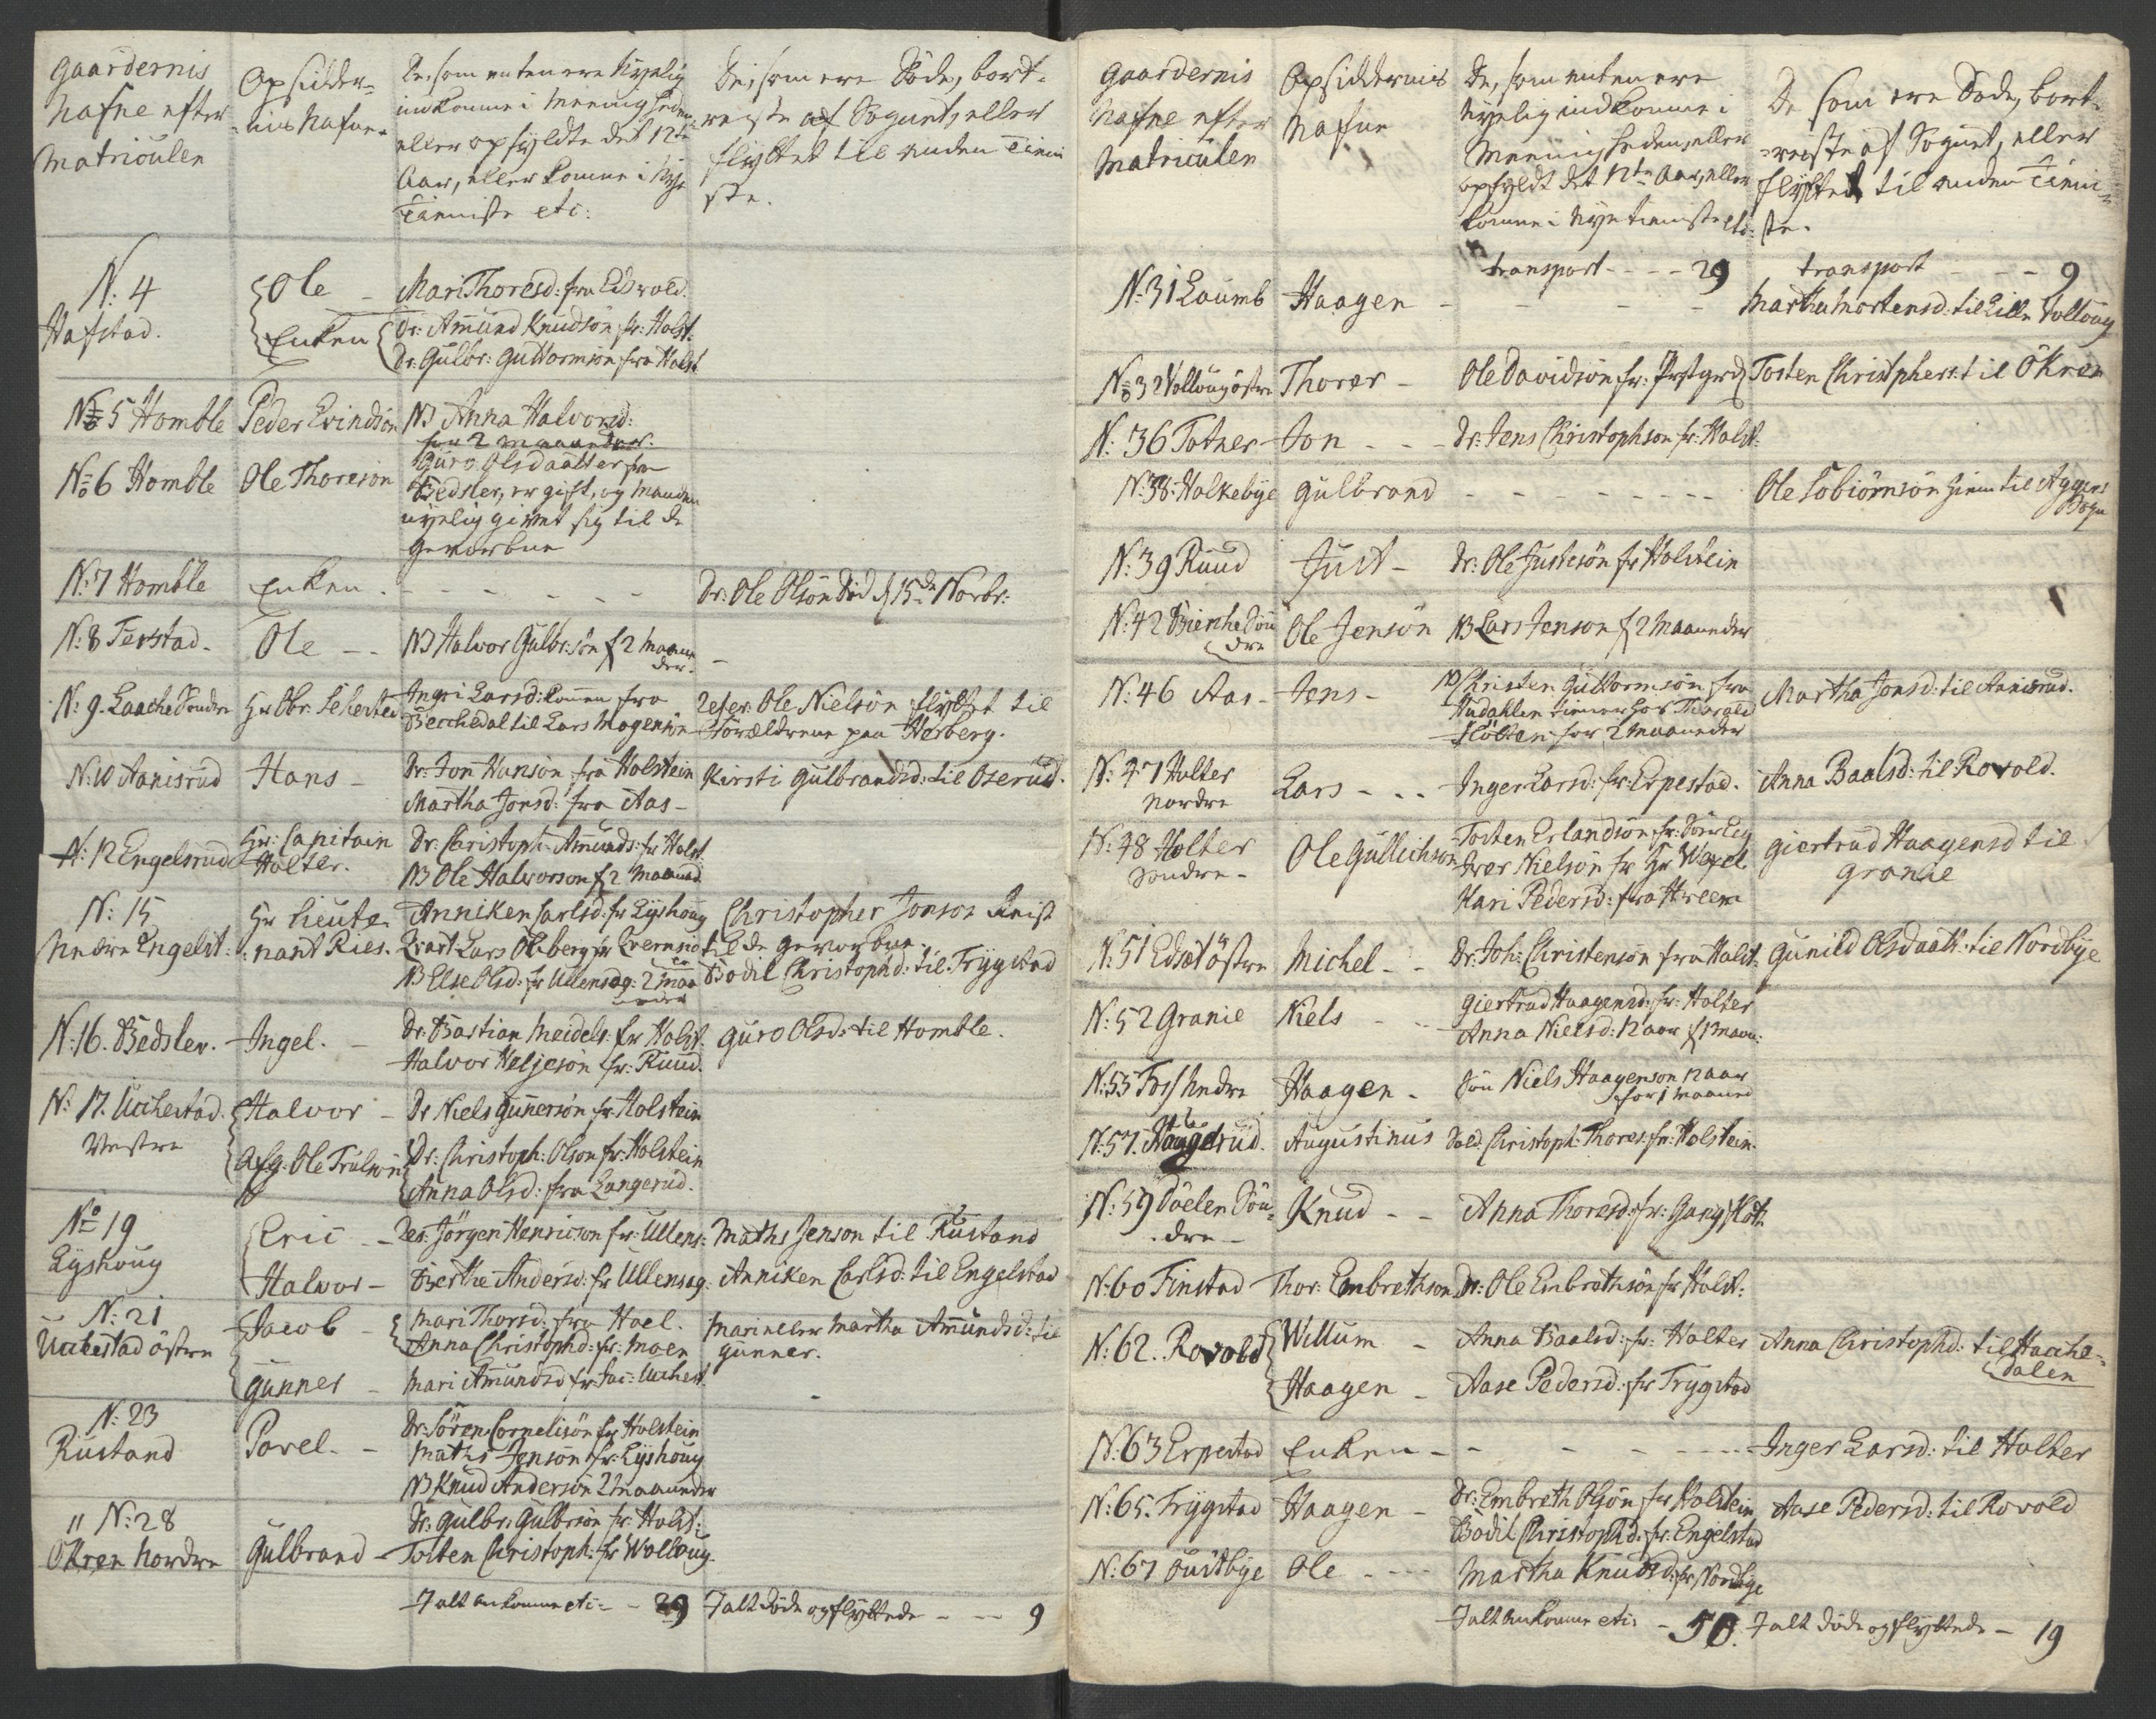 Gaardernis
Nafne efter
Matriculen
Opsidder-
nis Nafne
De, som enten ere Nyelig
indkomne i Meenigheden
eller opfyldte det 12te
Aar, eller komne i Nye
Tienniste etc:
De, som ere Döde, bort-
reiste af Sognet, eller
flyttet til anden Tieni
ste.
N: 4
Hafstad.
Ole
Enken
Mari Thoresd: fra Edsvold.
Dr: Amund Knudsön fr: Holst:
Dr: Gulbr: Guttormsön fra Holst
No 5 Homble
Peder Evindsön
NB Anna Halvorsd:
for 2 maaneder.
No 6 Homble
Ole Thoresön
Guro Olsdaatter fra
Bedsler, er gift, og Manden
nyelig givet sig til de
Gevorbne
N: 7 Homble
Enken
Dr: Ole Olsön död d 15de Novbr:
N: 8 Terstad.
Ole
NB Halvor Gulbr:sön f 2 Maane
der.
N: 9. Laache Söndre
Hr Obr:
Ingri Larsd: kommen fra
Berchedal til Lars Mogensön
Reser. Ole Nielsön flyttet til
Forældrene paa Herberg.
N: 10 Aanisrud
Hans
Dr: Jon Hansön fra Holstein
Martha Jonsd: fra Aas
Kirsti Gulbrandsd: til Oserud.
N: 12 Engelsrud
Hr: Capitain
Holter.
Dr: Christoph: Amunds: fr Holst:
NB Ole Halvorson f 2 Maaned
N: 15
Nedre Engelst:
Hr Lieute-
nant Ries.
Anniken Carlsd: fr Lyshoug
Qvart: Lars Olsberg fr
NB Else Olsd: fr Ullensag: 2 maa
neder
Christopher Jonson Reist
til de Gevorbne.
Bodil Christophd: til Trygstad
N: 16. Bedsler.
Ingel.
Dr: Bastian Meidels: fr Holst:
Halvor Heljesön fr: Ruud.
Guro Olsd: til Homble.
N: 17. Uchestad
Vestre
Halvor
Afg. Ole Trulsön
Dr Niels Gunnersön fr Holstein
Dr: Christoph: Olson fr: Holstein
Anna Olsd: fra Langerud.
No 19
Lyshoug
Eric
Halvor
Res: Jörgen Henricson fr: Ullens:
Berthe Andersd: fr Ullensag:
Maths Jenson til Rustand
Anniken Carlsd: til Engelstad
N: 21
Uchestad östre
Jacob
Gunner
Mari Thorsd: fra Hoel.
Anna Christophd: fr: Moen
Mari Amundsd fr Jac: Uchest:
Mari eller Martha Amundsd: til
Gunner.
N: 23
Rustand
Povel.
Dr: Sören Cornelisön fr Holstein
Maths Jensön fr: Lyshoug
NB Knud Andersön 2 Maaneder
N: 28
Økren Nordre
Gulbrand
Dr: Gulbr: Gulbrsön fr: Holst:
Tosten Christoph: fr Wolloug.
I alt ankomne etc: - 29
I alt döde og flyttede - - 9
Gaardernis
Nafne efter
Matriculen
Opsiddernis
Nafne
De, som enten ere
Nyelig indkomne i
Meenigheden, eller
opfyldt det 12te Aar, eller
komne i Nye tienniste etc:
De som ere Döde, bort-
reiste af Sognet, eller
flyttet til anden Tieni-
ste.
transport - - - 29
transport - - - 9
N: 31 Loumb
Haagen
Martha Mortensd: til Lille Volloug
No 32 Volloug östre
Thorer
Ole Davidsön fr: Prstgrd
Tosten Christphers: til Økren
N: 36 Totner
Jon
Dr: Jens Christophson fr: Holst:
N: 38: Holkebye
Gulbrand
Ole Tobiörnsön hiem til Aggers
Sogn
N: 39 Ruud
Just
Dr: Ole Justesön fr Holstein
N: 42 Bierche Sön
dre
Ole Jensön
NB Lars Jenson f 2 Maaneder
N: 46 Aas
Jens
NB Christen Guttormsön fra
Hudahlen tiener hos Thorald
Flötten for 2 Maaneder
Martha Jonsd: til Aanisrud.
N: 47 Holter
Nordre
Lars
Inger Larsd: fr: Erpestad.
Anna Baalsd: til Rovold.
N: 48 Holter
Söndre
Ole Gullichson
Tosten Erlandsön fr:
Iver Nielsön fr Hr Wexel
Kari Pedersd: fra Hreem
Giertrud Haagensd til
Granie
N: 51 Edsæt östre
Michel
Dr: Joh: Christensön fra Holst:
Gunild Olsdaatt: til Nordbye
N: 52 Granie
Niels
Giertrud Haagensd: fr: Holter
Anna Nielsd: 12 aar f 1 Maan:
N: 55 Foss Nedre
Haagen
Sön Niels Haagenson 12 aar
for 1 maaned
N: 57.
Augustinus
Sold. Christoph: Thores: fr: Holstein.
N: 59 Döelen Sön
dre
Knud
Anna Thoresd: fr: Gangflöt:
N: 60 Finstad
Thor: Embrethson
Dr: Ole Embrethsön fr Holst:
N: 62. Rovold
Willum
Haagen
Anna Baalsd: fr: Holter
Aase Pedersd: fr Trygstad
Anna Christophd: til Hache-
dalen
N: 63 Erpestad
Enken
Inger Larsd: til Holter
N: 65. Trygstad
Haagen
Dr: Embreth Olsön fra Holstein
Bodil Christophd: fr: Engelstad
Aase Pedersd: til Rovold
N: 67 Oustbye
Ole
Martha Knudsd: fr Nordbye
I alt ankomne etc: - 50.
I alt döde og flyttede - 19